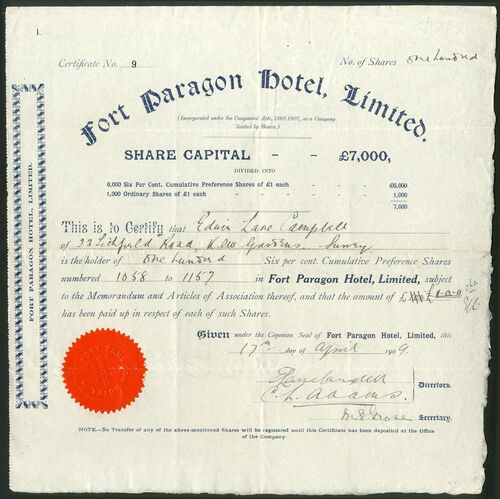 1.
Certificate No. 9
No. of Shares one hundred
Fort Paragon Hotel, Limited.
(Incorporated under the Companies' Acts, 1862-1907, as a Company
limited by Shares.)
SHARE CAPITAL - - £7,000,
DIVIDED INTO
6,000 Six Per Cent. Cumulative Preference Shares of £1 each - - - £6,000
1,000 Ordinary Shares of £1 each - - - 1,000
7,000
This is to Certify that Edwin Lane Campbell
of 23 Lichfield Road, Kew Gardens, Surrey
is the holder of one hundred Six per cent. Cumulative Preference Shares
numbered 1058 to 1157 in Fort Paragon Hotel, Limited, subject
to the Memorandum and Articles of Association thereof, and that the amount of £
has been paid up in respect of each of such Shares.
Given under the Common Seal of Fort Paragon Hotel, Limited, this
17th day of April 1909
Directors.
C. L. Adams.
Secretary.
NOTE.—No Transfer of any of the above-mentioned Shares will be registered until this Certificate has been deposited at the Office
of the Company.
FORT PARAGON HOTEL, LIMITED.